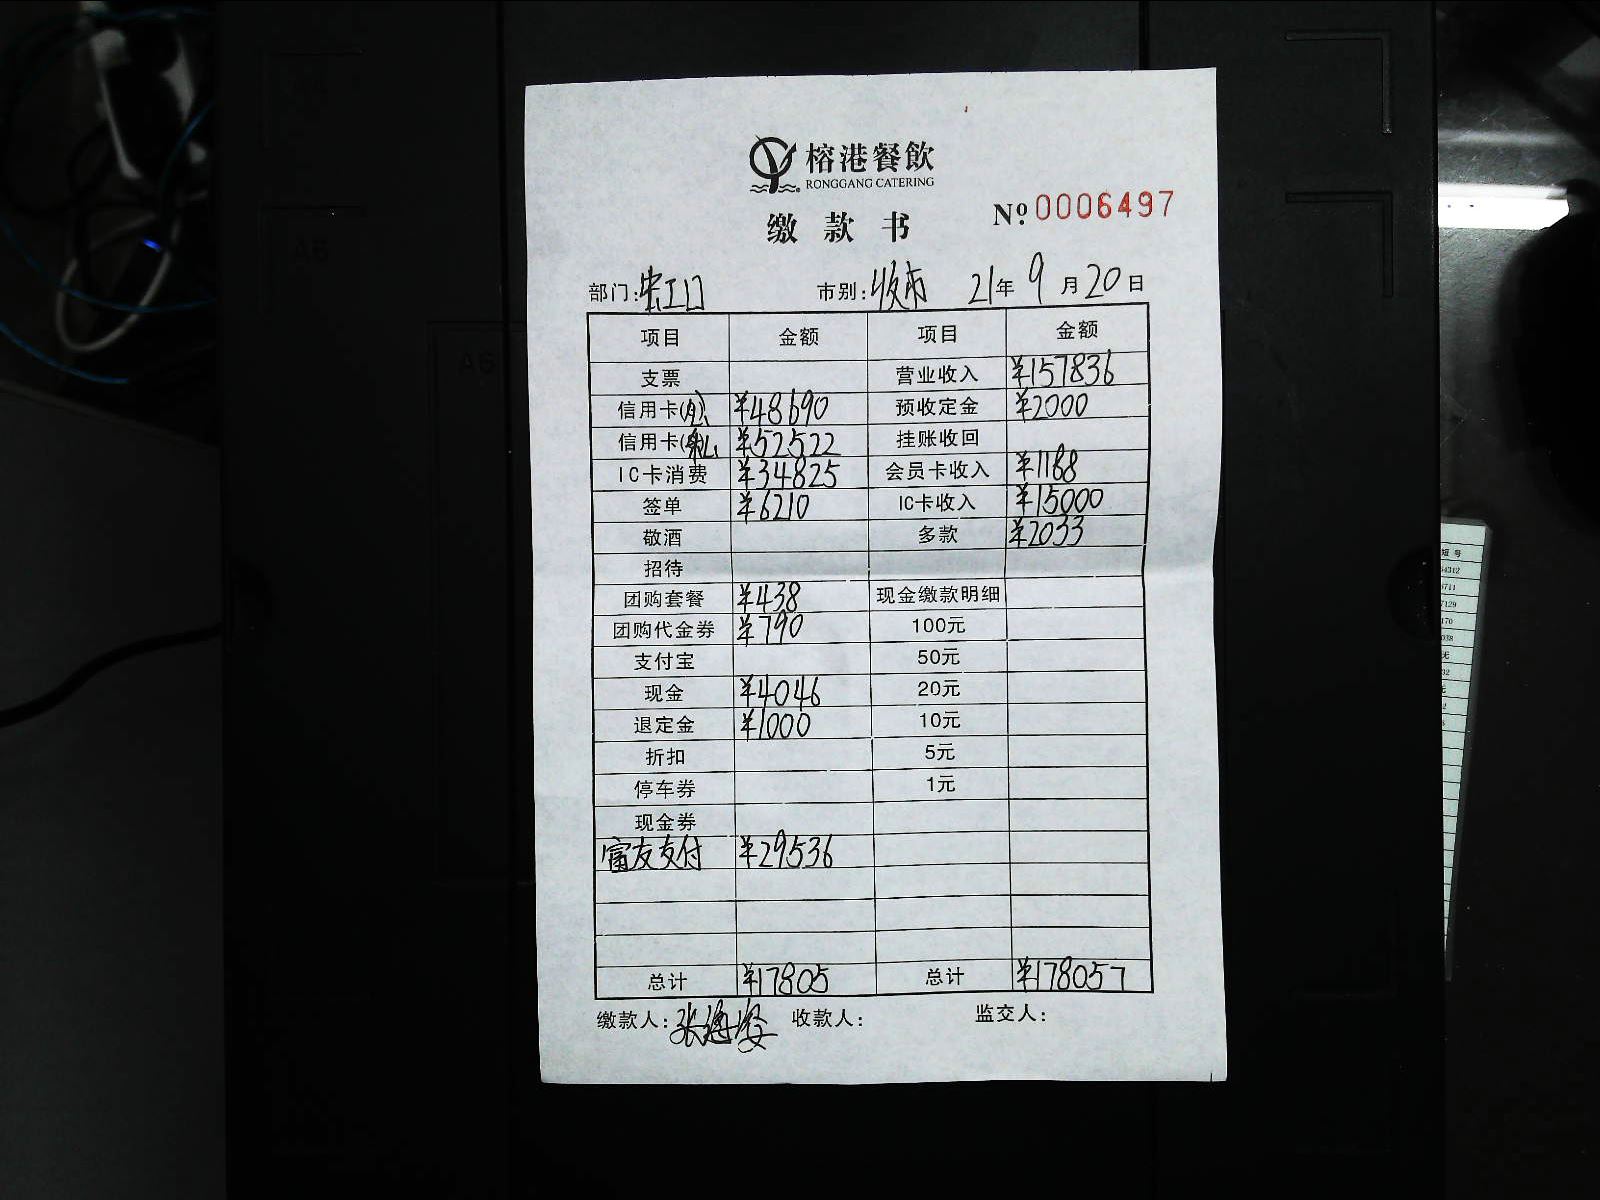 榕港餐飲
RONGGANG CATERING
缴款书 № 0006497
部门: 市别:收市 21年9月20日
项目 金额 项目 金额
支票 营业收入 ¥157836
信用卡 ¥48690 预收定金 ¥2000
信用卡(私) ¥52522 挂账收回
IC卡消费 ¥34825 会员卡收入 ¥1188
签单 ¥6210 IC卡收入 ¥15000
敬酒 多款 ¥2033
招待
团购套餐 ¥438 现金缴款明细
团购代金券 ¥790 100元
支付宝 50元
现金 ¥4046 20元
退定金 ¥1000 10元
折扣 5元
停车券 1元
现金券
富友支付 ¥29536
总计 ¥17805 总计 ¥178057
缴款人: 收款人: 监交人: